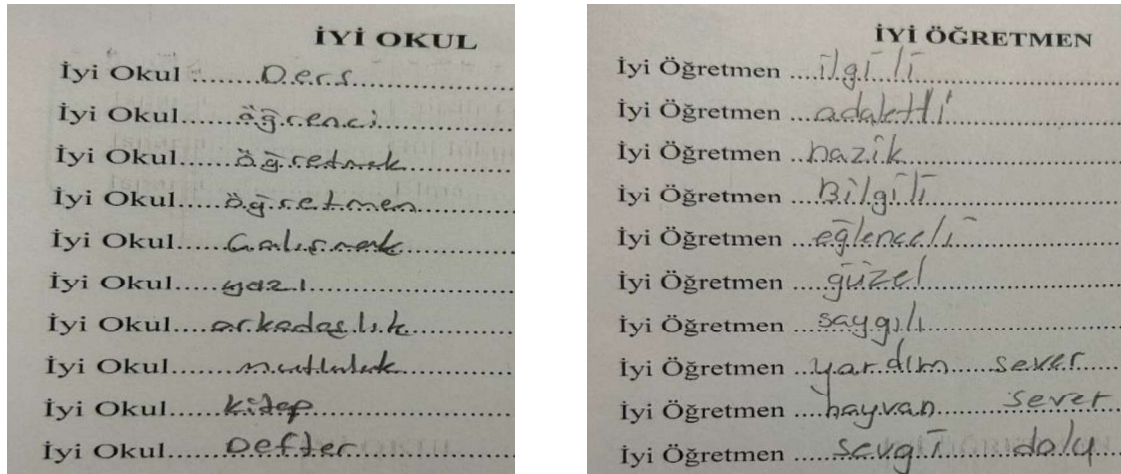 İYİ OKUL
İyi Okul :.......Ders
İyi Okul.....öğrenci
İyi Okul.....öğretmek
İyi Okul.....öğretmen
İyi Okul.....Çalışmak
İyi Okul.....yazı
İyi Okul....arkadaşlık
İyi Okul.....mutluluk
İyi Okul......kitap
İyi Okul......Defter
İYİ ÖĞRETMEN
İyi Öğretmen ....ilgili
İyi Öğretmen ...adaletli
İyi Öğretmen ..nazik
İyi Öğretmen ...Bilgili
İyi Öğretmen ...eğlenceli
İyi Öğretmen ....güzel
İyi Öğretmen ...saygılı
İyi Öğretmen ..yardım sever
İyi Öğretmen ...hayvan sever
İyi Öğretmen .....sevgi dolu